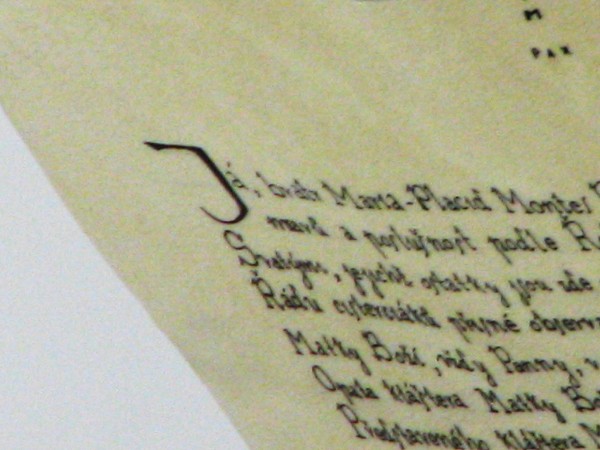 M
PAX
Já, bratr Maria-Placid
mravů a poslušnost podle
Svatých, jejichž ostatky jsou zde
Řádu cisterciáků přísné observ
Matky Boží, vždy Panny, v
Opata kláštera Matky Bo
Představeného kláštera M